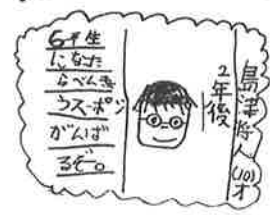 島津将人(10)才
2年後
6年生
になった
らべん強
うスーポツ
がんば
るぞ。